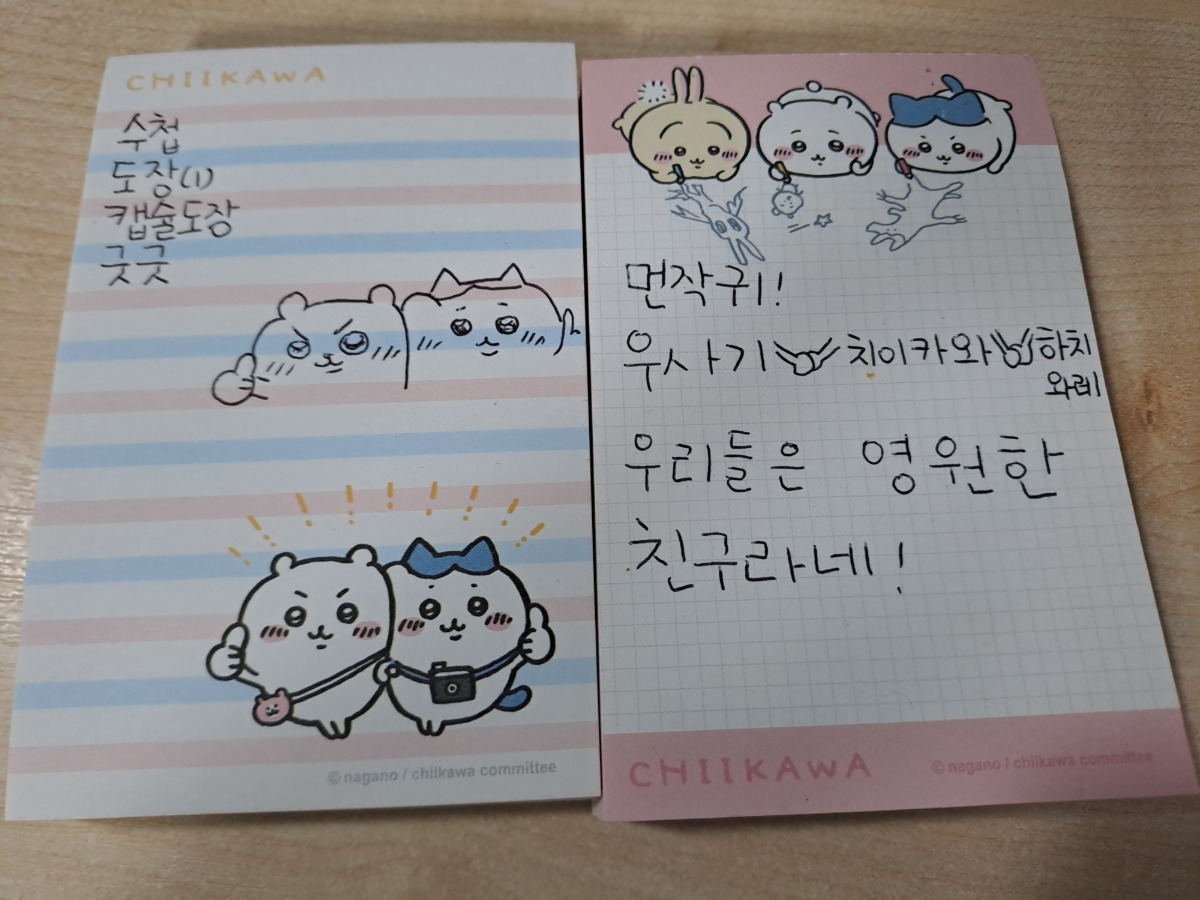 CHIIKAWA
수첩
도장(1)
캡슐도장
굿굿
© nagano / chiikawa committee
먼작귀!
우사기 치이카와 하치
와레
우리들은 영원한
친구라네!
CHIIKAWA
© nagano / chiikawa committee